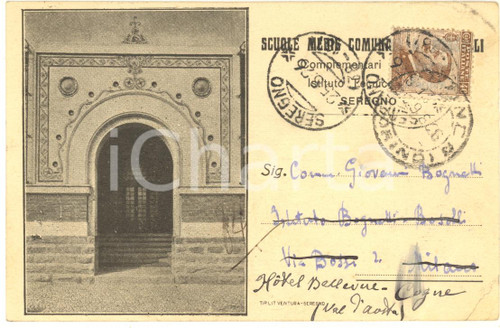 SCUOLE MEDIE COMUNA LI
Complementari
Istituto Tecnico
SEREGNO
SEREGNO
iCharta
Sig. Comm. Giovanni Bognetti
Istituto Bognetti-Boselli
Via Bossi 2 Milano
Hôtel Bellevue - Cogne
(Val d'Aosta)
TIP. LIT. VENTURA - SEREGNO